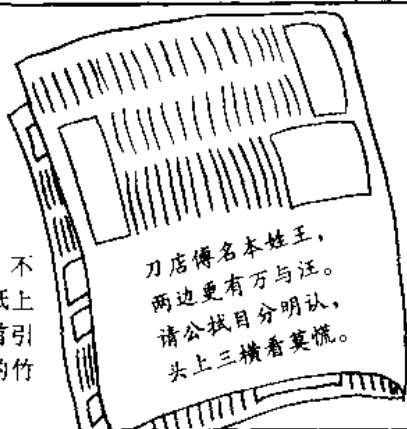 不
上
引
竹
刀店傅名本姓王，
两边更有万与汪。
请公拭目分明认，
头上三横看莫慌。